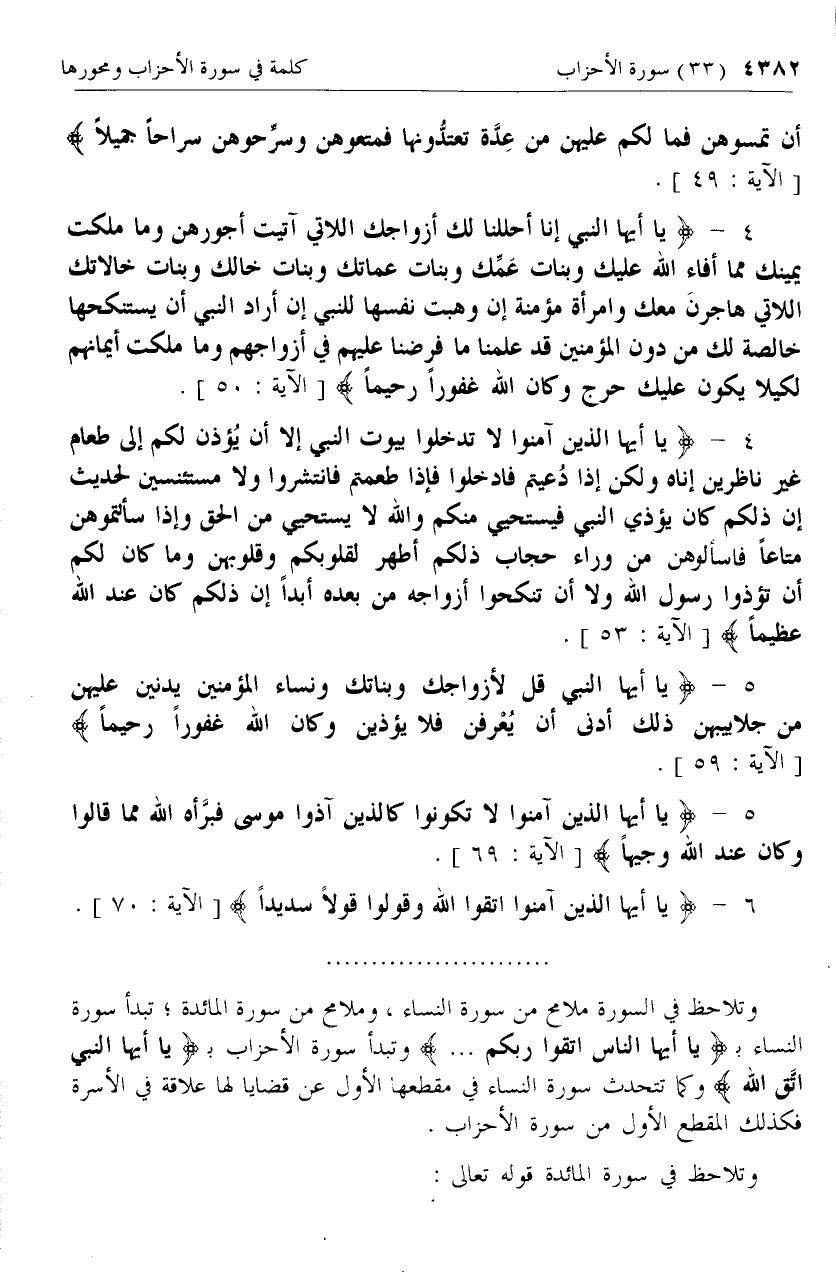 ٤٣٨٢ (٣٣) سورة الأحزاب كلمة في سورة الأحزاب ومحورها
أن تمسوهن فما لكم عليهن من عِدَّة تعتدُّونها فمتعوهن وسرِّحوهن سراحاً جميلاً ﴾
[ الآية : ٤٩ ] .
٤ – ﴿ يا أيها النبي إنا أحللنا لك أزواجك اللاتي آتيت أجورهن وما ملكت
يمينك مما أفاء الله عليك وبنات عَمِّك وبنات عماتك وبنات خالك وبنات خالاتك
اللاتي هاجرنَ معك وامرأة مؤمنة إن وهبت نفسها للنبي إن أراد النبي أن يستنكحها
خالصة لك من دون المؤمنين قد علمنا ما فرضنا عليهم في أزواجهم وما ملكت أيمانهم
لكيلا يكون عليك حرج وكان الله غفوراً رحيماً ﴾ [ الآية : ٥٠ ] .
٤ – ﴿ يا أيها الذين آمنوا لا تدخلوا بيوت النبي إلا أن يُؤذن لكم إلى طعام
غير ناظرين إناه ولكن إذا دُعيتم فادخلوا فإذا طعمتم فانتشروا ولا مستئنسين لحديث
إن ذلكم كان يؤذي النبي فيستحيي منكم والله لا يستحيي من الحق وإذا سألتموهن
متاعاً فاسألوهن من وراء حجاب ذلكم أطهر لقلوبكم وقلوبهن وما كان لكم
أن تؤذوا رسول الله ولا أن تنكحوا أزواجه من بعده أبداً إن ذلكم كان عند الله
عظيماً ﴾ [ الآية : ٥٣ ] .
٥ – ﴿ يا أيها النبي قل لأزواجك وبناتك ونساء المؤمنين يدنين عليهن
من جلابيبهن ذلك أدنى أن يُعْرفن فلا يؤذين وكان الله غفوراً رحيماً ﴾
[ الآية : ٥٩ ] .
٥ – ﴿ يا أيها الذين آمنوا لا تكونوا كالذين آذوا موسى فبرَّأه الله مما قالوا
وكان عند الله وجيهاً ﴾ [ الآية : ٦٩ ] .
٦ – ﴿ يا أيها الذين آمنوا اتقوا الله وقولوا قولاً سديداً ﴾ [ الآية : ٧٠ ] .
.........................
وتلاحظ في السورة ملامح من سورة النساء ، وملامح من سورة المائدة ؛ تبدأ سورة
النساء بـ ﴿ يا أيها الناس اتقوا ربكم ... ﴾ وتبدأ سورة الأحزاب بـ ﴿ يا أيها النبي
اتَّق الله ﴾ وكما تتحدث سورة النساء في مقطعها الأول عن قضايا لها علاقة في الأسرة
فكذلك المقطع الأول من سورة الأحزاب .
وتلاحظ في سورة المائدة قوله تعالى :